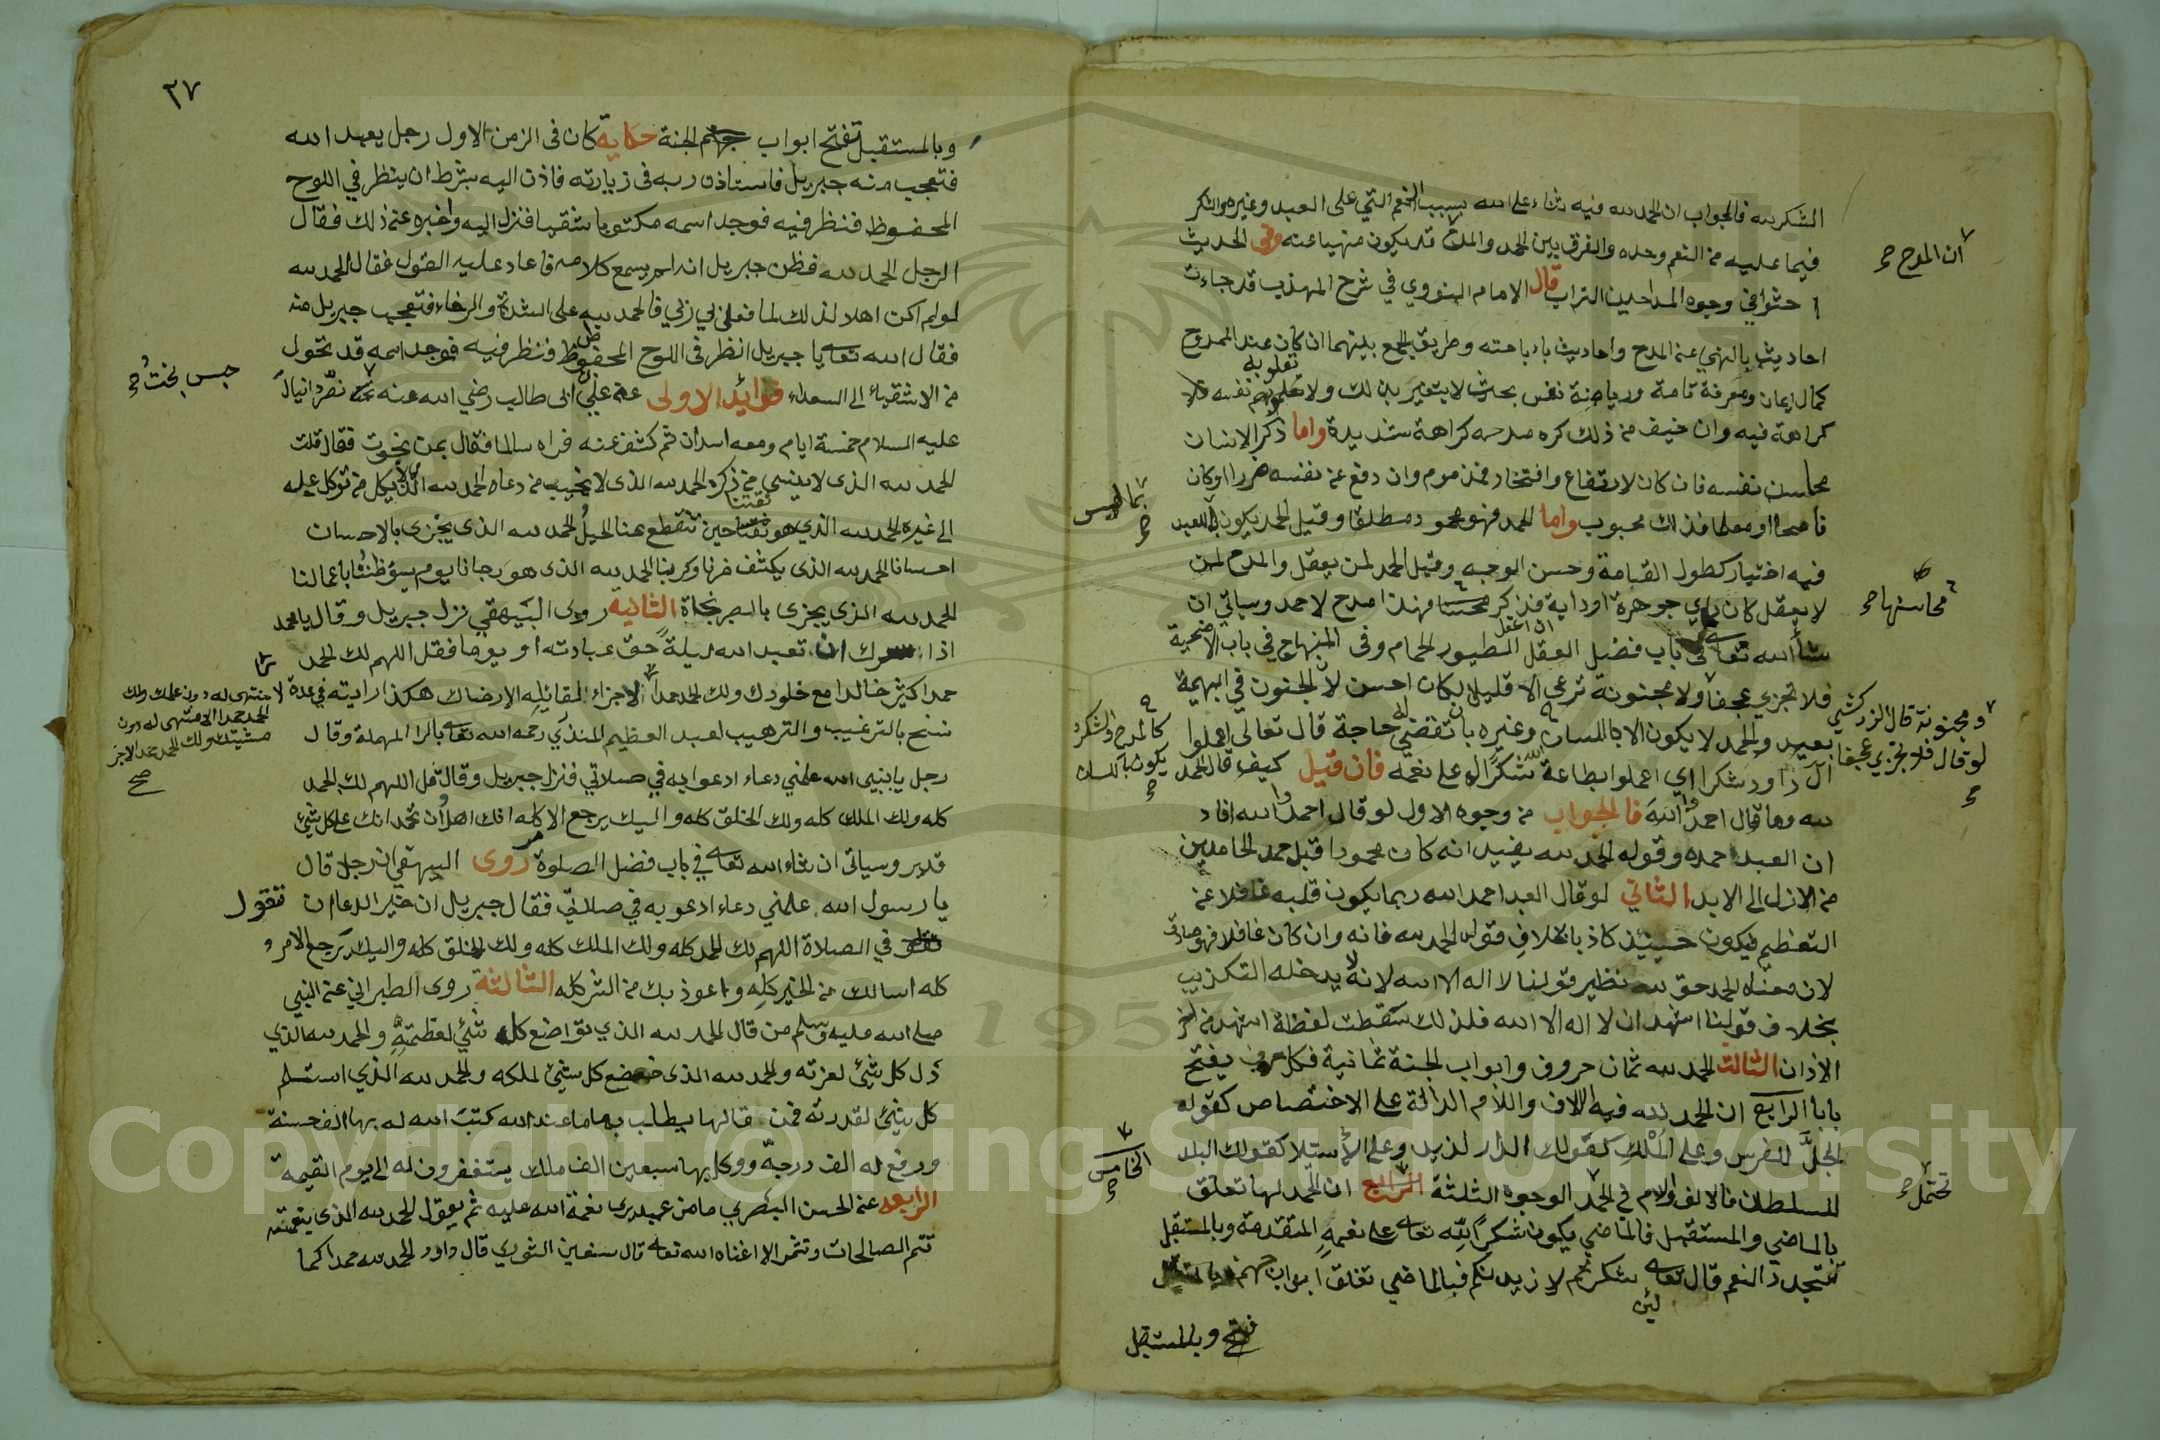 الشكر لله فالجواب ان الحمد لله فيه ثناء على الله بسبب النعم التي على العبد وغيره والشكر
فيما عليه من النعم وحده والفرق بين الحمد والمدح قد يكون منهيا عنه وفي الحديث
ان المدح صح
احثوا في وجوه المداحين التراب قال الامام النووي في شرح المهذب قد جاءت
احاديث بالنهي عن المدح واحاديث باباحته وطريق الجمع بينهما ان كان عند الممدوح
كمال ايمان ومعرفة تامة ورياضة نفس بحيث لا يتغير بذلك ولا تعلو به نفسه فلا
كراهة فيه وان خيف من ذلك كره مدحه كراهة شديدة واما ذكر الانسان
محاسن نفسه فان كان لارتفاع وافتخار فمذموم وان دفع عن نفسه ضررا او كان
ناصحا او معلما فذلك محبوب واما الحمد فهو محمود مطلقا وقيل الحمد يكون للعبد
بما ليس صح
فيه اختيار كطول القامة وحسن الوجه وقيل الحمد لمن يعقل والمدح لمن
لا يعقل كان راي جوهرة او داية فذكر محاسنها فهذا مدح لا حمد وسياتي ان
محاسنها صح
شاء الله تعالى في باب فضل العقل ان اعقل الطيور الحمام وفي المنهاج في باب الاضحية
فلا تجزي عجفا ولا مجنونة ترعى الا قليلا لكان احسن لان الجنون في البهيمة
ومجنونة قال الزركشي لو قال فلا تجزي عجفا صح
بعيد والحمد لا يكون الا باللسان وغيره بان تقضي له حاجة قال تعالى اعملوا
كالمدح والشكر يكون باللسان صح
ال داود شكرا اي اعملوا بطاعة الله شكرا له على نعمه فان قيل كيف قال الحمد
لله وما قال احمدوا الله فالجواب من وجوه الاول لو قال احمدوا الله افاد
ان العبد احمده وقوله الحمد لله يفيد انه كان محمودا قبل حمد الحامدين
من الازل الى الابد الثاني لو قال العبد احمد الله ربما يكون قلبه غافلا عن
التعظيم فيكون حينئذ كاذبا بخلاف قوله الحمد لله فانه وان كان غافلا فهو صادق
لان معناه الحمد حق لله نظير قولنا لا اله الا الله لانه لا يدخله التكذيب
بخلاف قولنا اشهد ان لا اله الا الله فلذلك سقطت لفظة اشهد من اخر
الاذان الثالث الحمد لله ثمان حروف وابواب الجنة ثمانية فكل حرف يفتح
بابا الرابع ان الحمد لله فيه الالف واللام الدالة على الاختصاص كقوله
الجل للفرس وعلى الملك كقولك الدار لزيد وعلى الاستلا كقولك البلد
للسلطان فالالف والام في الحمد الوجوه الثلثة الرابع ان الحمد لها تعلق
تحتمل صح
الخامس صح
بالماضي والمستقبل فالماضي يكون شكرا لله تعالى على نعمه المتقدمة وبالمستقبل
تتجدد النعم قال تعالى لئن شكرتم لازيدنكم فبالماضي تغلق ابواب جهنم
وبالمستقبل
٢٧
وبالمستقبل تفتح ابواب الجنة حكاية كان في الزمن الاول رجل يعبد الله
فتعجب منه جبريل فاستاذن ربه في زيارته فاذن اليه بشرط ان ينظر في اللوح
المحفوظ فنظر فيه فوجد اسمه مكتوبا شقيا فنزل اليه واخبره عن ذلك فقال
الرجل الحمد لله فظن جبريل انه لم يسمع كلامه فاعاد عليه القول فقال الحمد لله
لو لم اكن اهلا لذلك لما فعله بي ربي فالحمد لله على الشدة والرخاء فتعجب جبريل منه
فقال الله تعالى يا جبريل انظر في اللوح المحفوظ فنظر فيه فوجد اسمه قد تحول
من الاشقياء الى السعداء فوائد الاولى عن علي ابن ابي طالب رضي الله عنه نصر دانيال
حبس بخت صح
عليه السلام خمسة ايام ومعه اسدان ثم كشف عنه فراه سالما فقال بمن نجوت فقال قلت
الحمد لله الذي لا ينسى من ذكره الحمد لله الذي لا يخيب من دعاه الحمد لله الذي لا يكل من توكل عليه
الى غيره الحمد لله الذي هو ثقتنا حين تنقطع عنا الحيل الحمد لله الذي يجزي بالاحسان
احسانا الحمد لله الذي يكشف ضرنا وكربنا الحمد لله الذي هو رجانا يوم يسؤ ظننا باعمالنا
الحمد لله الذي يجزي بالصبر نجاة الثانية روى البيهقي نزل جبريل وقال يا محمد
اذا سرك ان تعبد الله ليلة حق عبادته أو يوما فقل اللهم لك الحمد
حمدا كثيرا خالدا مع خلودك ولك الحمد حمدا لا جزاء لقائله الا رضاك هكذا رايته في عدة
لا منتهى له دون علمك ولك الحمد حمدا لا منتهى له دون مشيتك ولك الحمد حمدا لا اجر صح
نسخ بالترغيب والترهيب لعبد العظيم المنذري رحمه الله تعالى بالرا المهملة وقال
رجل يا نبي الله علمني دعاء ادعو به في صلاتي فنزل جبريل وقال قل اللهم لك الحمد
كله ولك الملك كله ولك الخلق كله واليك يرجع الامر كله انك اهل أن تحمد انك على كل شئ
قدير وسياتي ان شاء الله تعالى في باب فضل الصلوة روى البيهقي ان رجل قال
يا رسول الله علمني دعاء ادعو به في صلاتي فقال جبريل ان خير الدعا ان تقول
في الصلاة اللهم لك الحمد كله ولك الملك كله ولك الخلق كله واليك يرجع الامر
كله اسالك من الخير كله واعوذ بك من الشر كله الثالثة روى الطبراني عن النبي
صلى الله عليه وسلم من قال الحمد لله الذي تواضع كل شئ لعظمته والحمد لله الذي
ذل كل شئ لعزته والحمد لله الذي خضع كل شئ لملكه والحمد لله الذي استسلم
كل شئ لقدرته فمن قالها يطلب بها ما عند الله كتب الله له بها الف حسنة
ورفع له الف درجة ووكل بها سبعين الف ملك يستغفرون له الى يوم القيمة
الرابعة عن الحسن البصري ما من عبد يرى نعمة الله عليه ثم يقول الحمد لله الذي بنعمته
تتم الصالحات وتثمر الا اغناه الله تعالى قال سفين الثوري قال داود الحمد لله حمدا كما
Copyright © King Saud University
1957